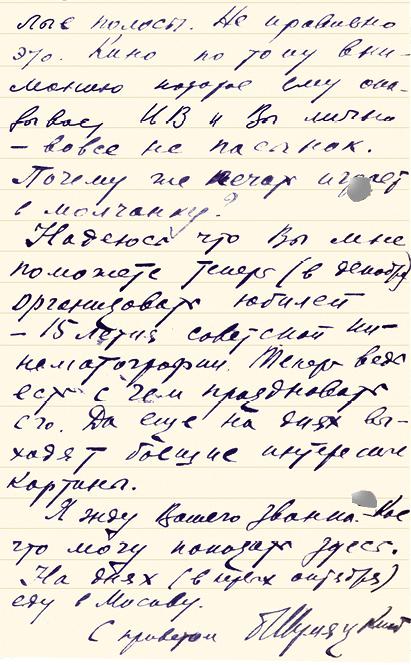 лые полосы. Не правильно
это. Кино по тому вни-
манию которое ему ока-
зывает ЦК и Вы лично
– вовсе не пасынок.
Почему же печать играет
в молчанку?
Надеюсь что Вы мне
поможете теперь (в декабре)
организовать юбилей
– 15 летия советской ки-
нематографии. Теперь ведь
есть с чем праздновать
его. Да еще на днях вы-
ходят боевые интересные
картины.
Я жду Вашего звонка. Кое
что могу показать здесь.
На днях (в первых октября)
еду в Москву.
С приветом БШумяцкий